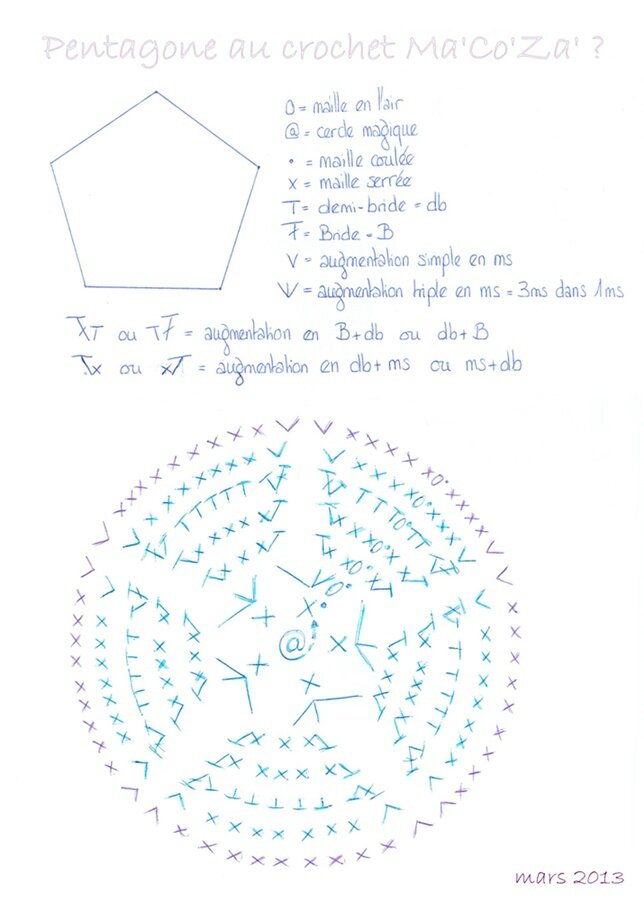 Pentagone au crochet Ma'Co'Za' ?
O = maille en l'air
@ = cercle magique
• = maille coulée
x = maille serrée
T = demi-bride = db
Ŧ = Bride = B
V = augmentation simple en ms
W = augmentation triple en ms = 3ms dans 1ms
ŦT ou TŦ = augmentation en B+db ou db+B
Tx ou xT = augmentation en db+ms ou ms+db
@
mars 2013